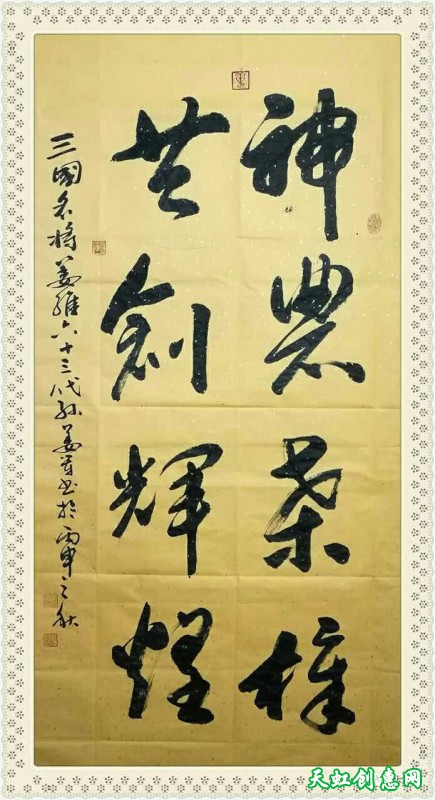 神農桑梓
共創輝煌
三國名將姜維六十三代孫姜书於丙申之秋
天虹创意网